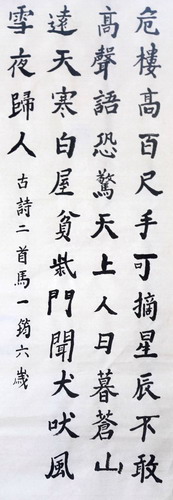 危樓高百尺手可摘星辰不敢
高聲語恐驚天上人日暮蒼山
遠天寒白屋貧柴門聞犬吠風
雪夜歸人
古詩二首馬一筠六歲